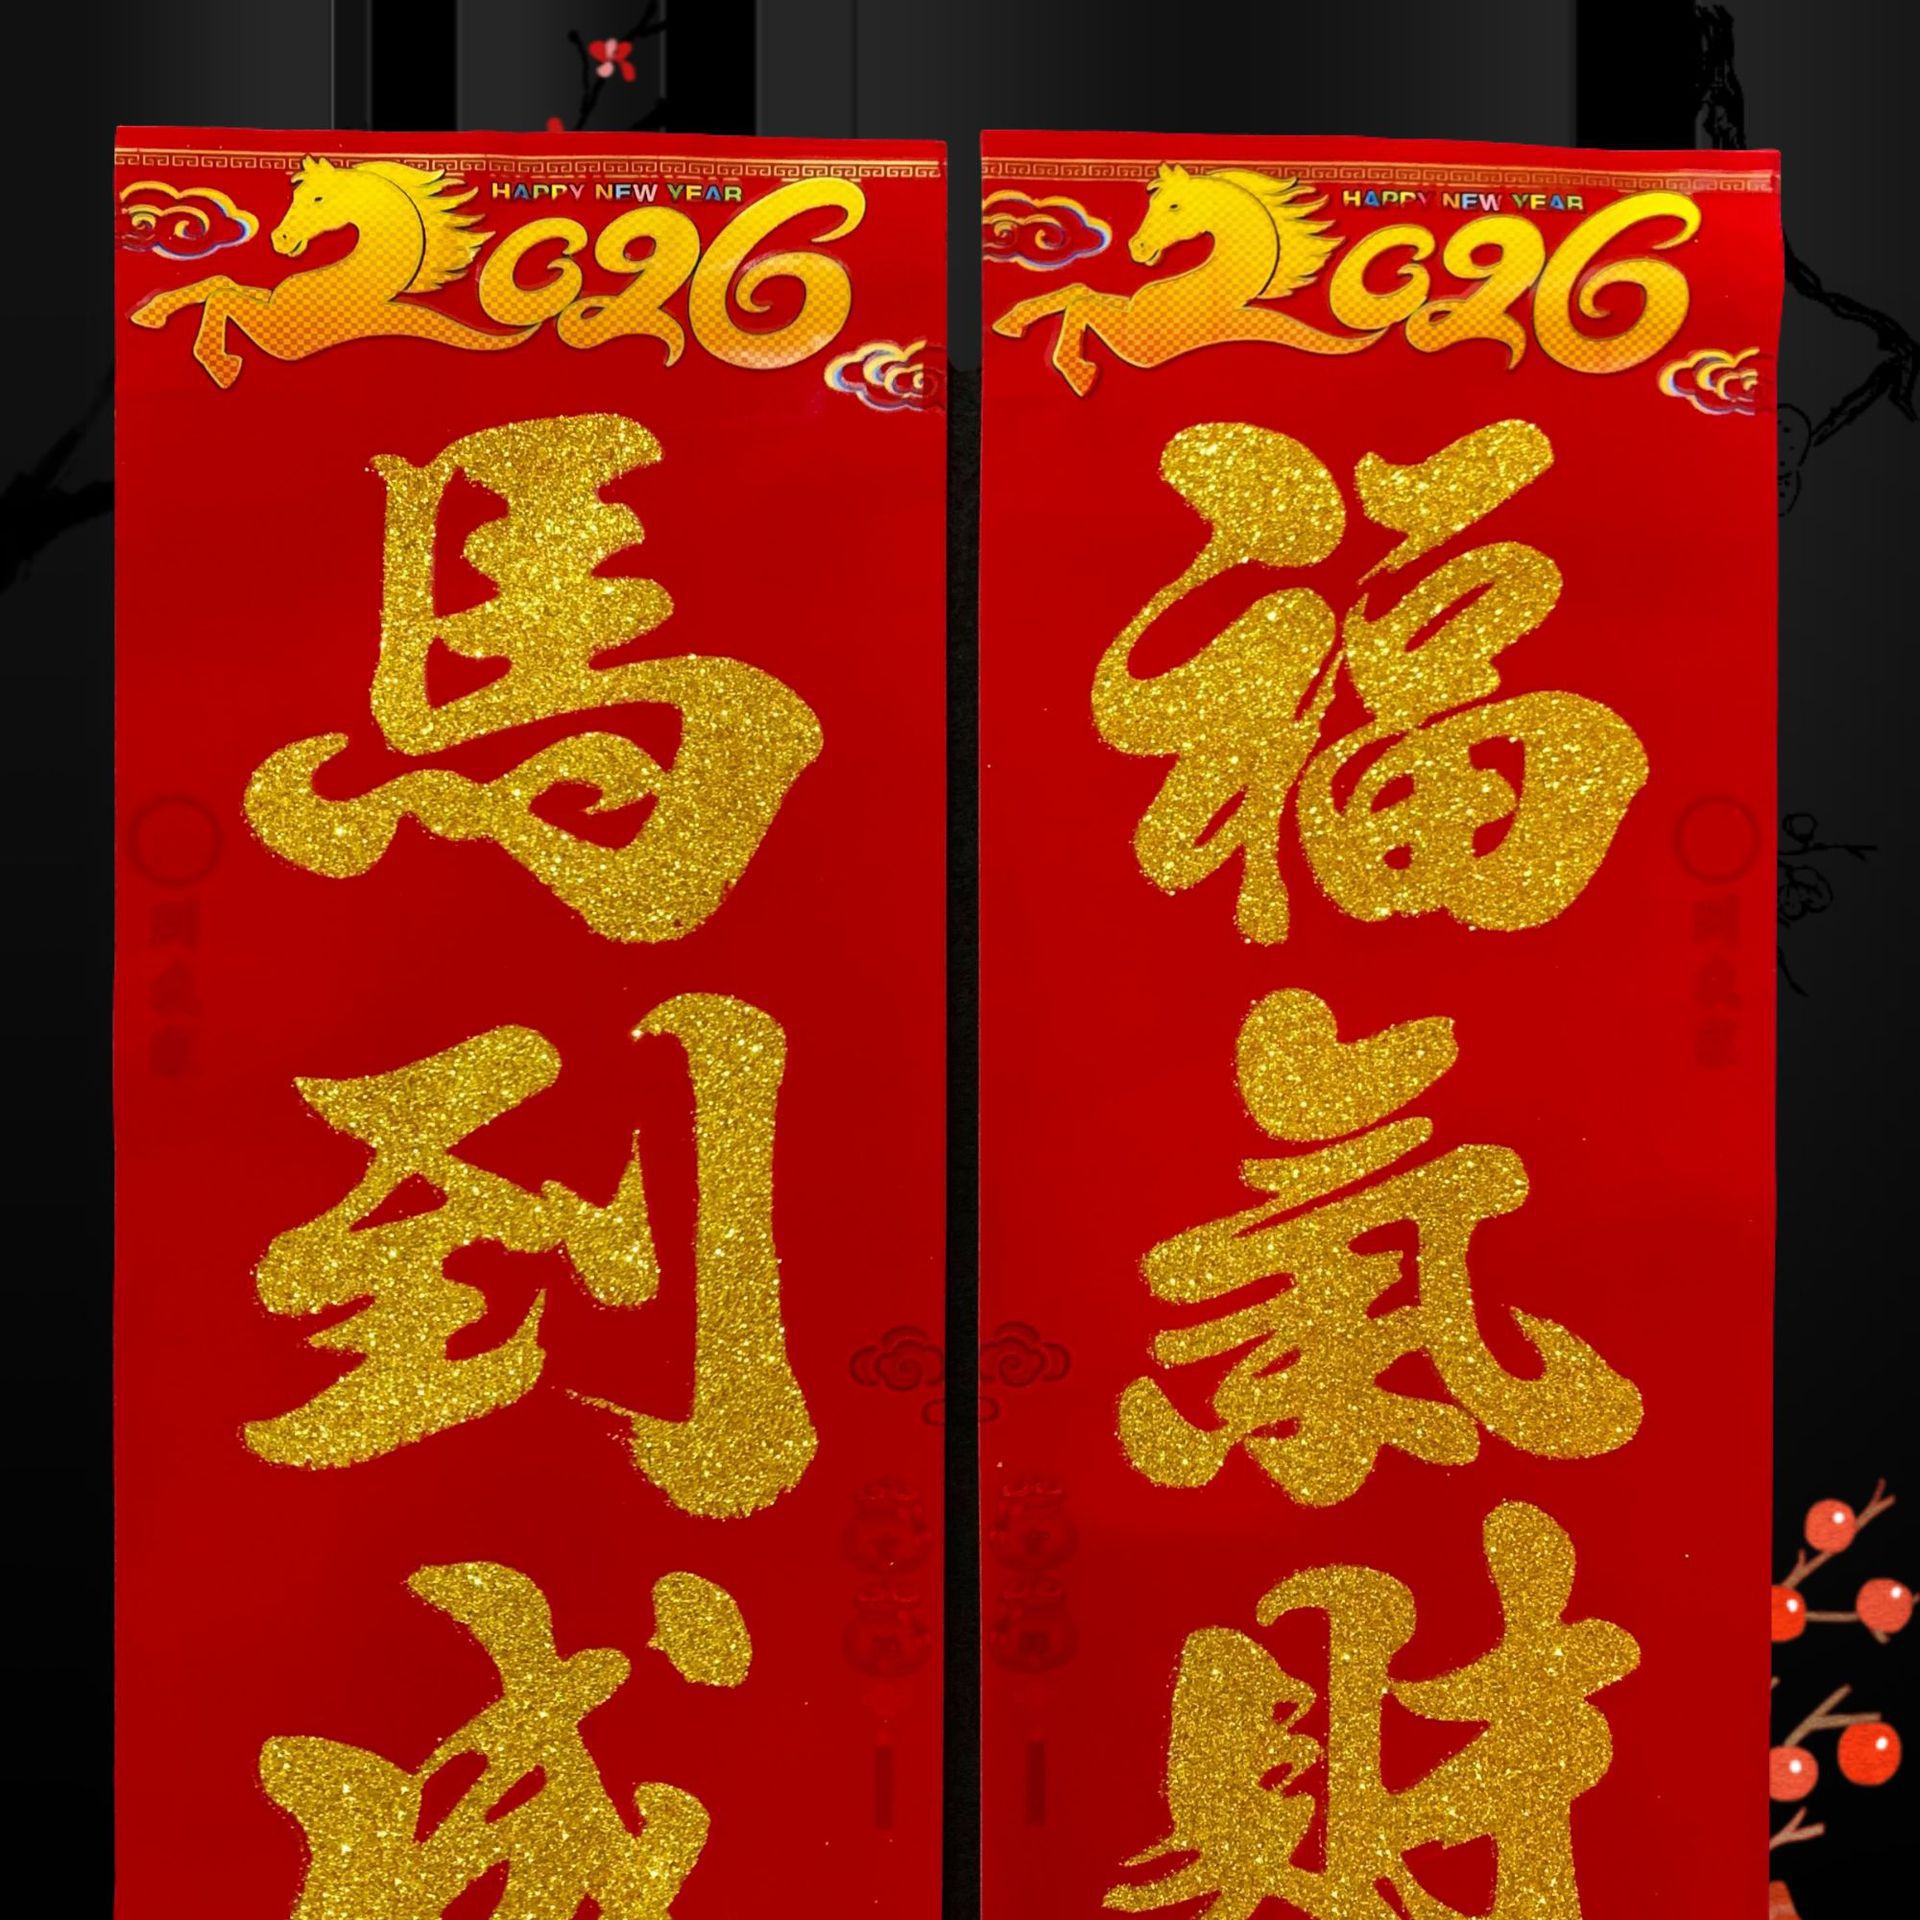 HAPPY NEW YEAR
2026
馬到成
HAPPY NEW YEAR
2026
福氣財